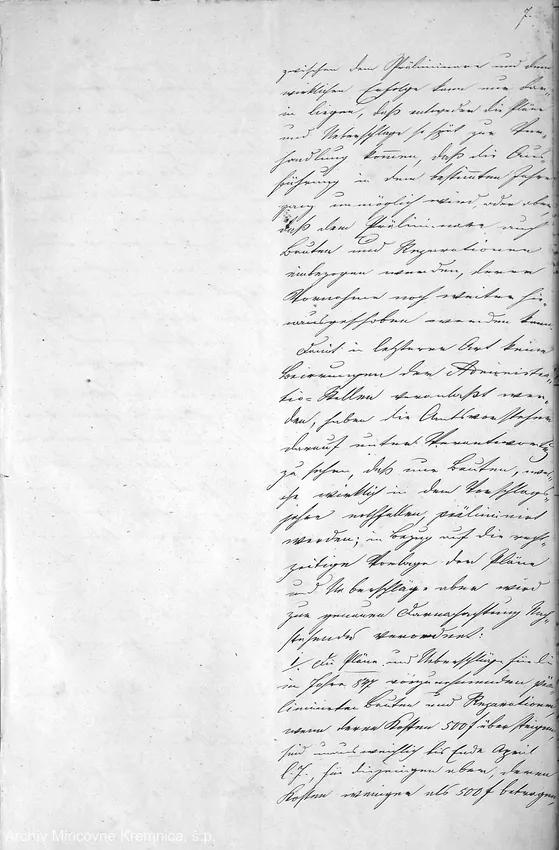 7.
zwischen dem Präliminare und dem
wirklichen Erfolge kann nur dar-
in liegen, daß entweder die Pläne
und Ueberschläge so spät zur Ver-
handlung kommen, daß die Aus-
führung in dem bestimmten Jahr-
gang unmöglich wird, oder aber
daß dem Präliminare auch
Bauten und Reparationen
einbezogen werden, deren
Vornahme noch weiter hin-
ausgeschoben werden kann.
Damit in letzterer Art keine
Beirrungen der Administra-
tiv-Stellen veranlaßt wer-
den, haben die Amtsvorsteher
darauf unter Verantwortung
zu sehen, daß nur Bauten, wel-
che wirklich in dem Vorschlags-
jahre nothfallen, präliminirt
werden; in Bezug auf die recht-
zeitige Vorlage der Pläne
und Ueberschläge aber wird
zur genauen Darnachachtung Nach-
stehendes verordnet:
1. Die Pläne und Ueberschläge für die
im Jahre 847 vorzunehmenden prä-
liminirten Bauten und Reparationen
wenn deren Kosten 500 f übersteigen
sind unausweichlich bis Ende April
l. J., für diejenigen aber, deren
Kosten weniger als 500 f betragen
Archív Mincovne Kremnica, š.p.